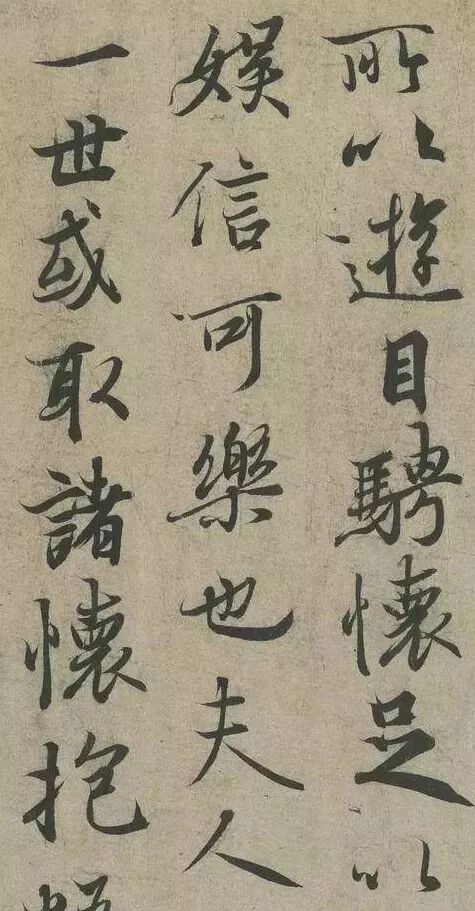 所以遊目騁懷足以
娛信可樂也夫人
一世或取諸懷抱